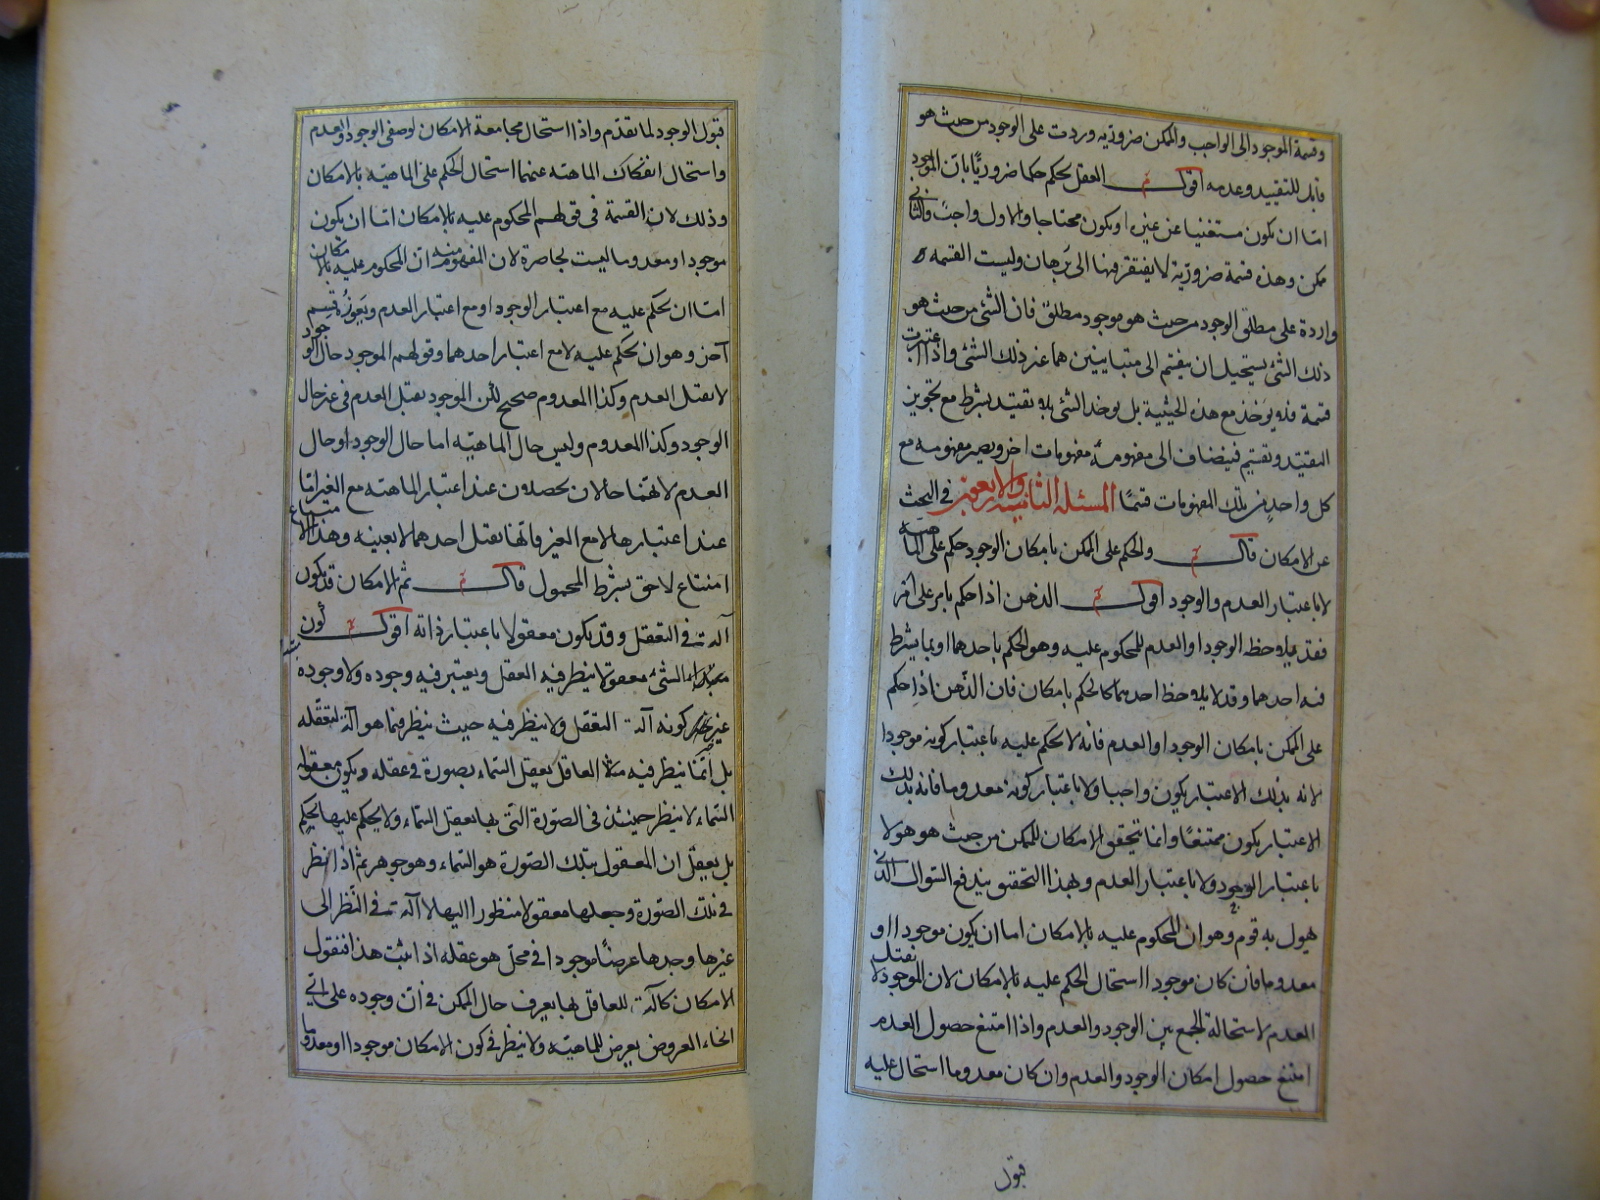 وقسمة الموجود الى الواجب والممكن ضرورية وردت على الوجود من حيث هو
قابل للتقييد وعدمه اقول العقل يحكم حكما ضروريا بان الموجود
اما ان يكون مستغنيا عن غيره او يكون محتاجا والاول واجب والثاني
ممكن وهذه قسمة ضرورية لا يفتقر فيها الى برهان وليست القسمة
واردة على مطلق الوجود من حيث هو موجود مطلق فان الشئ من حيث هو
ذلك الشئ يستحيل ان ينقسم الى متباينين هما غير ذلك الشئ واذا اعتبرت
قسمة فلا يؤخذ مع هذه الحيثية بل يوخذ الشئ بلا تقييد بشرط مع تجويز
التقييد وتقسيم فيضاف الى مفهومه مفهومات اخر ويصير مفهومه مع
كل واحد من تلك المفهومات قسما المسئلة الثانية والاربعون في البحث
عن الامكان قال والحكم على الممكن بامكان الوجود حكم على الماهية
لا باعتبار العدم والوجود اقول الذهن اذا حكم بامر على امر
فقد يلاحظ الوجود او العدم للمحكوم عليه وهو الحكم باحدهما او بما يشرط
فيه احدهما وقد لا يلاحظ احدهما كالحكم بامكان فان الذهن اذا حكم
على الممكن بامكان الوجود او العدم فانه لا يحكم عليه باعتبار كونه موجودا
لانه بذلك الاعتبار يكون واجبا ولا باعتبار كونه معدوما فانه بذلك
الاعتبار يكون ممتنعا وانما يتحقق الامكان للممكن من حيث هو هو لا
باعتبار الوجود ولا باعتبار العدم وبهذا التحقيق يندفع السوال الذي
يهول به قوم وهو ان المحكوم عليه بالامكان اما ان يكون موجودا او
معدوما فان كان موجودا استحال الحكم عليه بالامكان لان الموجود لا يقبل
العدم لاستحالة الجمع بين الوجود والعدم واذا امتنع حصول العدم
امتنع حصول امكان الوجود والعدم وان كان معدوما استحال عليه
قبول
قبول الوجود لما تقدم واذا استحال مجامعة الامكان لوصفي الوجود والعدم
واستحال انفكاك الماهية عنهما استحال الحكم على الماهية بالامكان
وذلك لان القسمة في قولهم المحكوم عليه بالامكان اما ان يكون
موجودا او معدوما ليست بحاصرة لان المفهوم منه ان المحكوم عليه بالامكان
اما ان يحكم عليه مع اعتبار الوجود او مع اعتبار العدم ويعوزه قسم
آخر وهو ان يحكم عليه لا مع اعتبار احدهما وقولهم الموجود حال الوجود
لا يقبل العدم وكذا المعدوم صحيح لكن الموجود يقبل العدم في غير حال
الوجود وكذا المعدوم وليس حال الماهية اما حال الوجود او حال
العدم لانهما حالان يحصلان عند اعتبار الماهية مع الغير اما
عند اعتبارها لا مع الغير فانها تقبل احدهما لا بعينه وهذا الامتناع
امتناع لاحق بشرط المحمول قال ثم الامكان قد يكون
آلة في التعقل وقد يكون معقولا باعتبار ذاته اقول كون
الشئ معقولا ينظر فيه العقل ويعتبر فيه وجوده ولا وجوده
غير كونه آلة التعقل ولا ينظر فيه حيث ينظر فيما هو آلة لتعقله
بل انما ينظر فيه مثلا العاقل يعقل السماء بصورة في عقله ويكون معقوله
السماء لا ينظر حينئذ في الصورة التي بها يعقل السماء ولا يحكم عليها بحكم
بل يعقل ان المعقول بتلك الصورة هو السماء وهو جوهر ثم اذا نظر
في تلك الصورة وجعلها معقولا منظورا اليها لا آلة في النظر الى
غيرها وجدها عرضا موجودا في محل هو عقله اذا ثبت هذا فنقول
الامكان كآلة للعاقل بها يعرف حال الممكن في ان وجوده على اي
انحاء العروض يعرض للماهية ولا ينظر في كون الامكان موجودا او معدوما